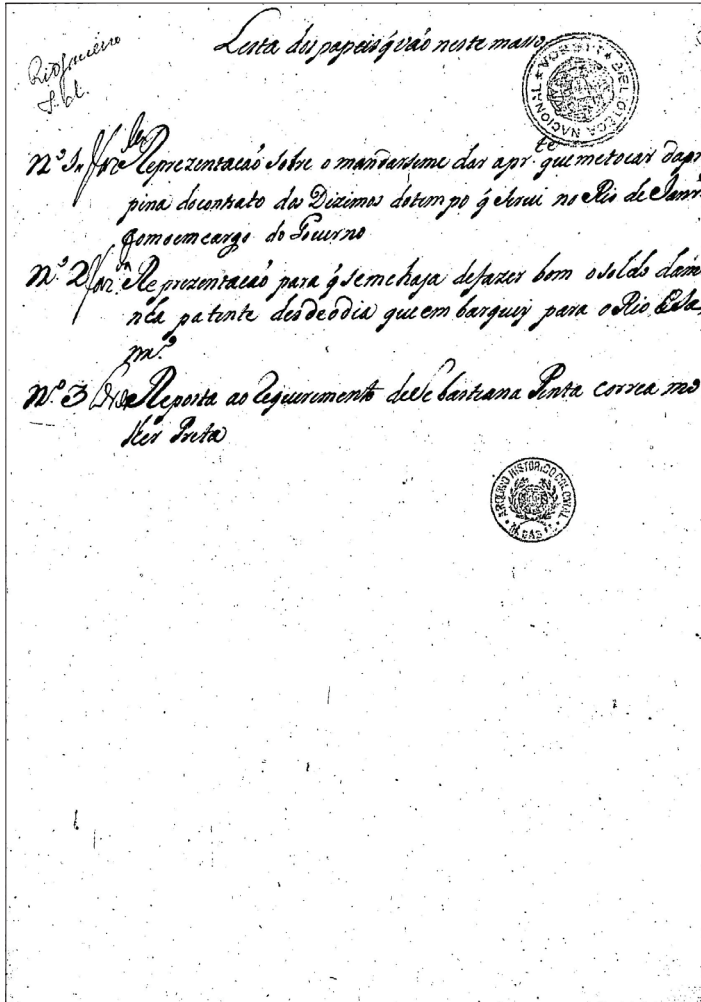 Rio Janeiro
S. d.
Lesta dos papeis q̃ vão neste masso
BIBLIOTECA NACIONAL
Nº 1 Reprezentacaó sobre o mandarseme dar a pr.te que me tocar da pro
pina do contrato dos Dizimos do tempo q̃ servi no Rio de Janr.
com o emcargo do Governo
Nº 2 Reprezentacaó para q̃ se me haja de fazer bom o soldo da mi
nha patente des de o dia que em barquey para o Rio
Nº 3 Reposta ao Requerimento de Sebastiana Pinta correa mo
lher Preta
ARQUIVO HISTORICO COLONIAL
LISBOA